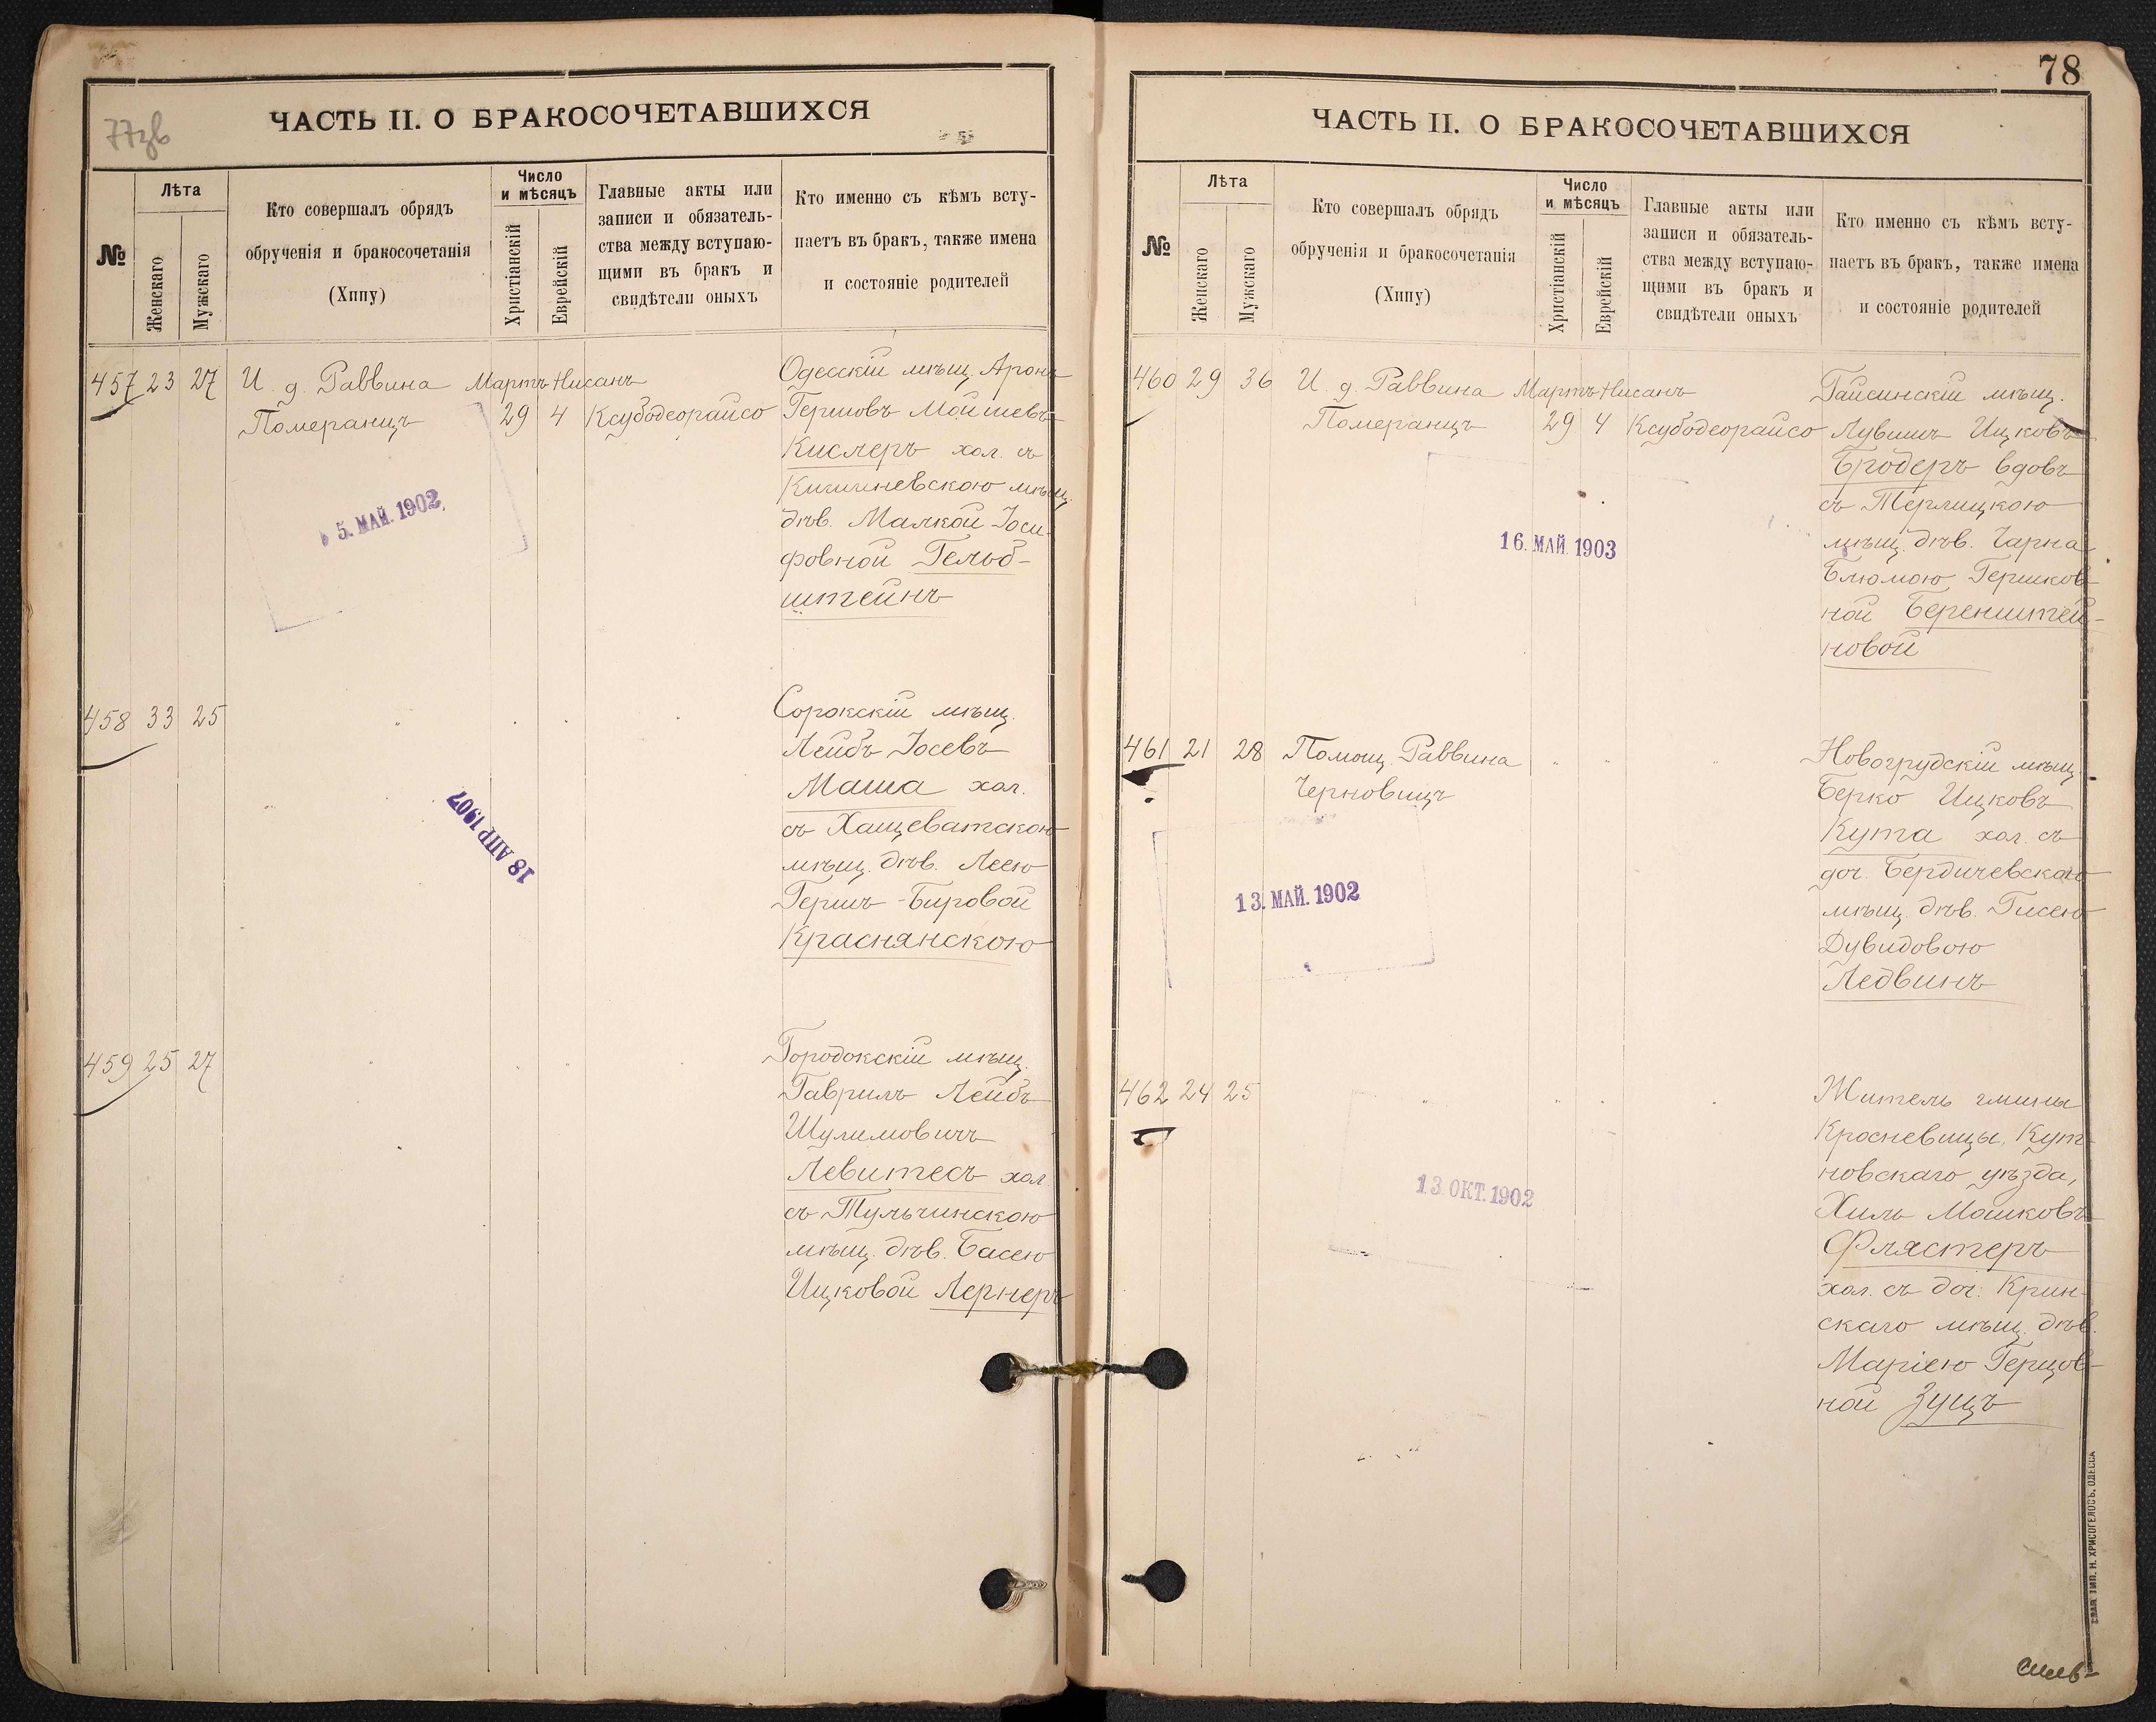 77зв
ЧАСТЬ II. О БРАКОСОЧЕТАВШИХСЯ
№
Лѣта
Женскаго
Мужскаго
Кто совершалъ обрядъ
обрученія и бракосочетанія
(Хипу)
Число
и мѣсяцъ
Христіанскій
Еврейскій
Главные акты или
записи и обязатель-
ства между вступаю-
щими въ бракъ и
свидѣтели оныхъ
Кто именно съ кѣмъ всту-
паетъ въ бракъ, также имена
и состояніе родителей
457 23 27 И. д. Раввина Мартъ Нисанъ
Померанцъ 29 4 Ксубодеорайсо
Одесскій мѣщ. Аронъ
Гершовъ Мойшевъ
Кислеръ хол. съ
Кишиневскою мѣщ.
дѣв. Малкой Іоси-
фовной Гельб-
штейнъ
5. МАЙ. 1902
458 33 25 " " " "
Сорокскій мѣщ.
Лейбъ Іосевъ
Маша хол.
съ Хащеватскою
мѣщ. дѣв. Леею
Гершъ-Бировой
Краснянскою
18 АПР 1907
459 25 27 " " " "
Городокскій мѣщ.
Гаврилъ Лейбъ
Шулимовичъ
Левитесъ хол.
съ Тульчинскою
мѣщ. дѣв. Басею
Ицковой Лернеръ
78
ЧАСТЬ II. О БРАКОСОЧЕТАВШИХСЯ
№
Лѣта
Женскаго
Мужскаго
Кто совершалъ обрядъ
обрученія и бракосочетанія
(Хипу)
Число
и мѣсяцъ
Христіанскій
Еврейскій
Главные акты или
записи и обязатель-
ства между вступаю-
щими въ бракъ и
свидѣтели оныхъ
Кто именно съ кѣмъ всту-
паетъ въ бракъ, также имена
и состояніе родителей
460 29 36 И. д. Раввина Мартъ Нисанъ
Померанцъ 29 4 Ксубодеорайсо
Гайсинскій мѣщ.
Лувишъ Ицковъ
Бродеръ вдовъ
съ Терлицкою
мѣщ. дѣв. Чарна
Блюмою Гершков-
ной Беренштей-
новой
16. МАЙ 1903
461 21 28 Помощ. Раввина " " "
Черновицъ
Новогрудскій мѣщ.
Берко Ицковъ
Кута хол. съ
доч. Бердичевскаго
мѣщ. дѣв. Гисею
Дувидовою
Ледвинъ
13. МАЙ. 1902
462 24 25 " " " "
Житель гмины
Кросневицы, Кут-
новскаго уѣзда,
Хиль Мошковъ
Флястеръ
хол. съ доч. Крин-
скаго мѣщ. дѣв.
Маріею Герцов-
ной Зуцъ
13 ОКТ. 1902
ТИП. Н. ХРИСОГЕЛОСЪ, ОДЕССА